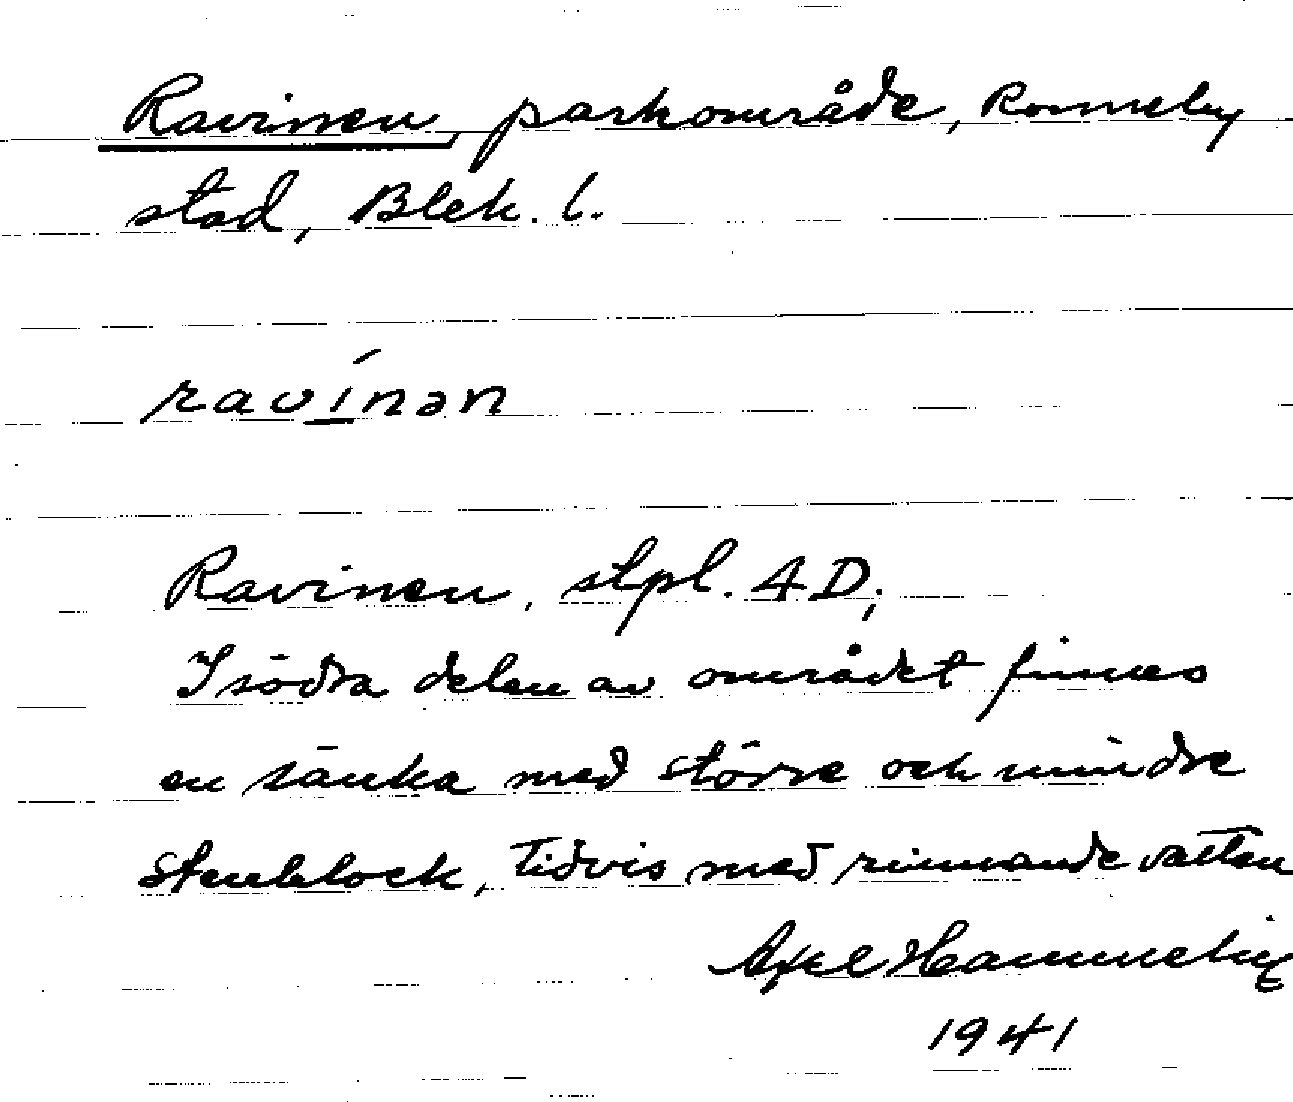 Ravinen, parkområde, Ronneby
stad, Blek. l.
ravínən
Ravinen, stpl. 4D;
I södra delen av området finnes
en sänka med större och mindre
stenblock, tidvis med rinnande vatten
Axel
1941